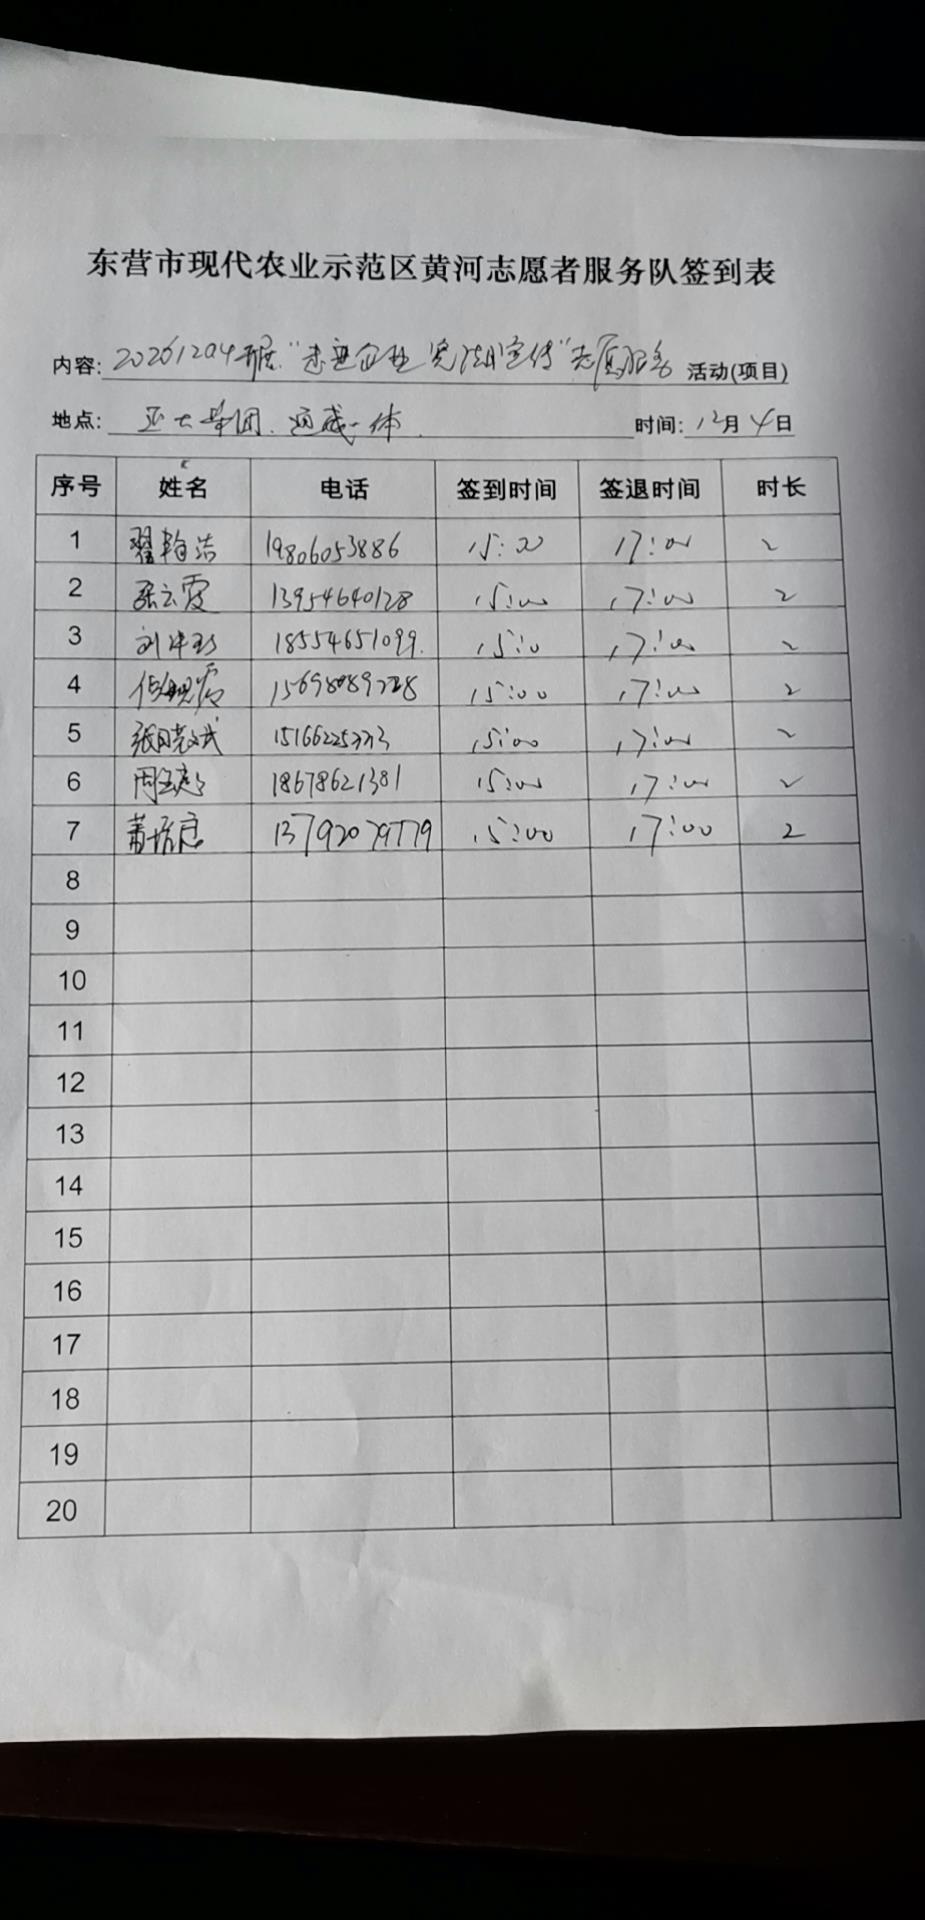 东营市现代农业示范区黄河志愿者服务队签到表
内容: 20261204开展“走进企业 宪法宣传”志愿服务 活动(项目)
地点: 亚士集团、一体 时间: 12月4日
序号 姓名 电话 签到时间 签退时间 时长
1 翟翰洁 19806053886 15:00 17:00 2
2 张云霞 13954640128 15:00 17:00 2
3 刘 18554651099. 15:0 17:00 2
4 15698089228 15:00 17:00 2
5 张晓斌 15166225373 15:00 17:00 2
6 周 18678621381 15:00 17:00 2
7 13792079779 15:00 17:00 2
8
9
10
11
12
13
14
15
16
17
18
19
20